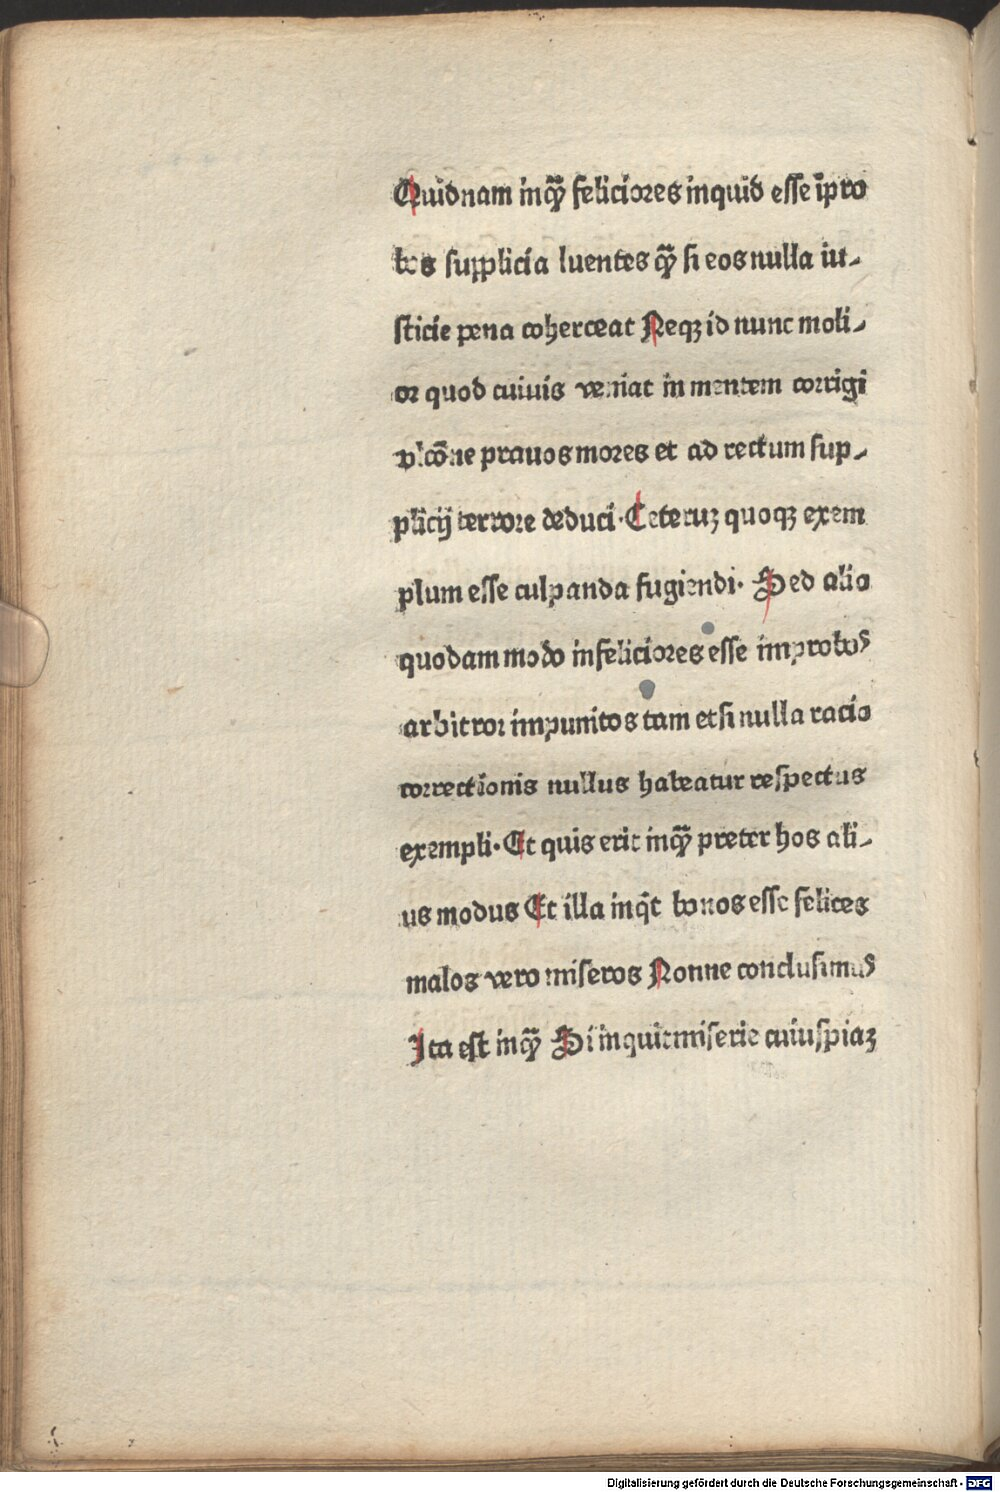 Quidnam inqͣꝫ feliciores inquid esse īpro
bos supplicia luentes qͣꝫ si eos nulla iu-
sticie pena coherceat Neqꝫ id nunc moli-
or quod cuiuis veniat in mentem corrigi
vlcōne prauos mores et ad rectum sup-
plicij terrore deduci· Ceteruꝫ quoqꝫ exem
plum esse culpanda fugiendi· Sed alio
quodam modo infeliciores esse improbos
arbitror impunitos tam etsi nulla racio
correctionis nullus habeatur respectus
exempli· Et quis erit inqͣꝫ preter hos ali-
us modus Et illa inqͥt bonos esse felices
malos vero miseros Nonne conclusimus
Ita est inqͣꝫ Si inquit miserie cuiuspiaꝫ
Digitalisierung gefördert durch die Deutsche Forschungsgemeinschaft - DFG